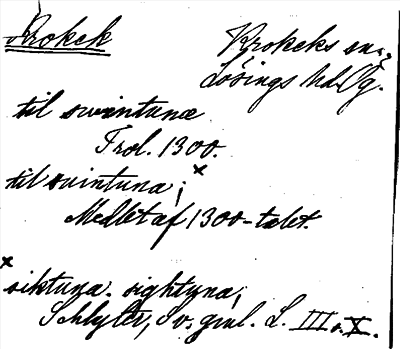 Krokek
Krokeks sn.,
Lösings hd. Ög.
til swintunæ
Frol. 1300.
til svintuna; x
Medlet af 1300-talet.
x siktuna. sightuna;
Schlyter, Sv. gml. L. III o. X.